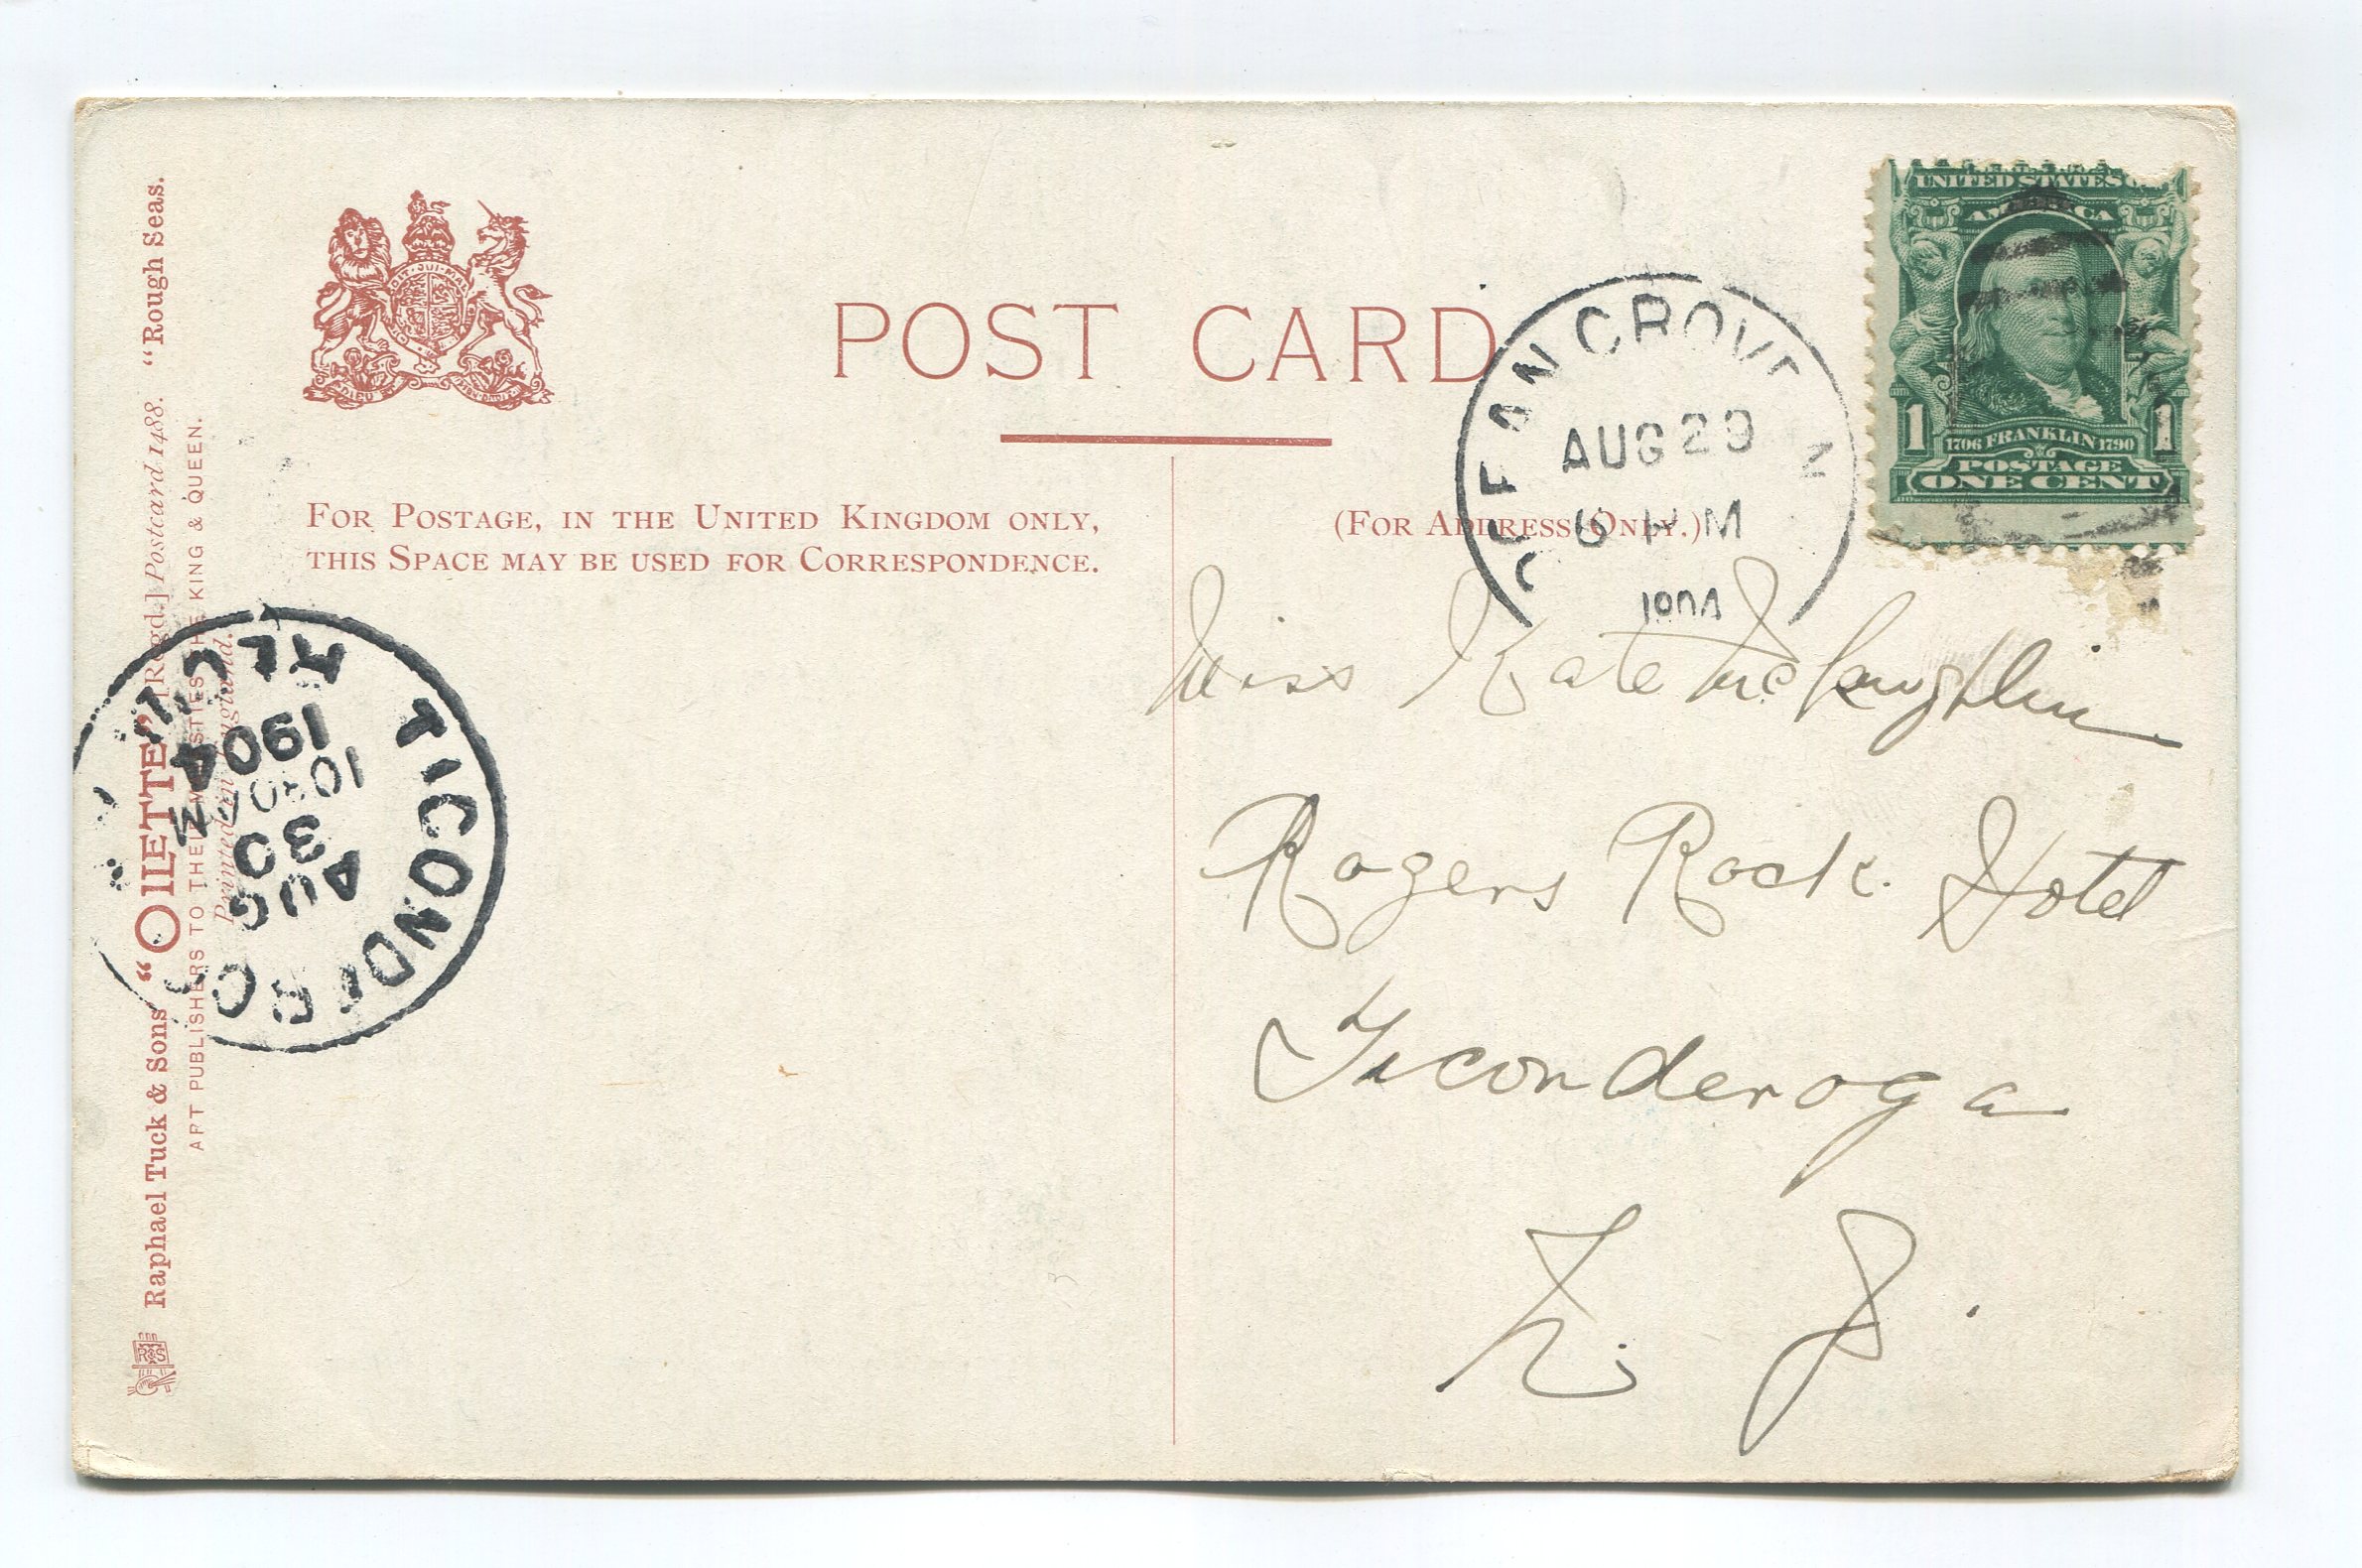 POST CARD
FOR POSTAGE, IN THE UNITED KINGDOM ONLY,
THIS SPACE MAY BE USED FOR CORRESPONDENCE.
(FOR ADDRESS ONLY.)
Raphael Tuck & Sons' "OILETTE" [Regd.] Postcard 1488. "Rough Seas.
ART PUBLISHERS TO THEIR MAJESTIES THE KING & QUEEN.
Printed in England.
R T & S
UNITED STATES OF
AMERICA
1 1
1706 FRANKLIN 1790
POSTAGE
ONE CENT
OCEAN GROVE N
AUG 29
6 PM
1904
TICONDEROGA
AUG
30
1904
Miss Kate McLaughlin
Rogers Rock Hotel
Ticonderoga
N. Y.